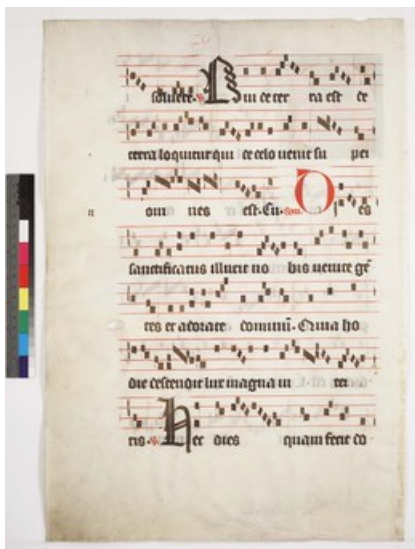 soluere. ℣ Qui de ter ra est de
terra loquitur qui de celo uenit su per
om nes est. Cu. com. D i es
sanctificatus illuxit no bis uenite gē
tes et adorate dominū. Quia ho
die descendit lux magna in ter
ris. ℣ Hec dies quam fecit do